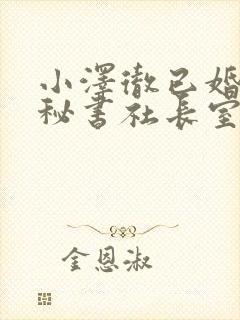 小澤徹已婚
秘書社长室
金恩淑